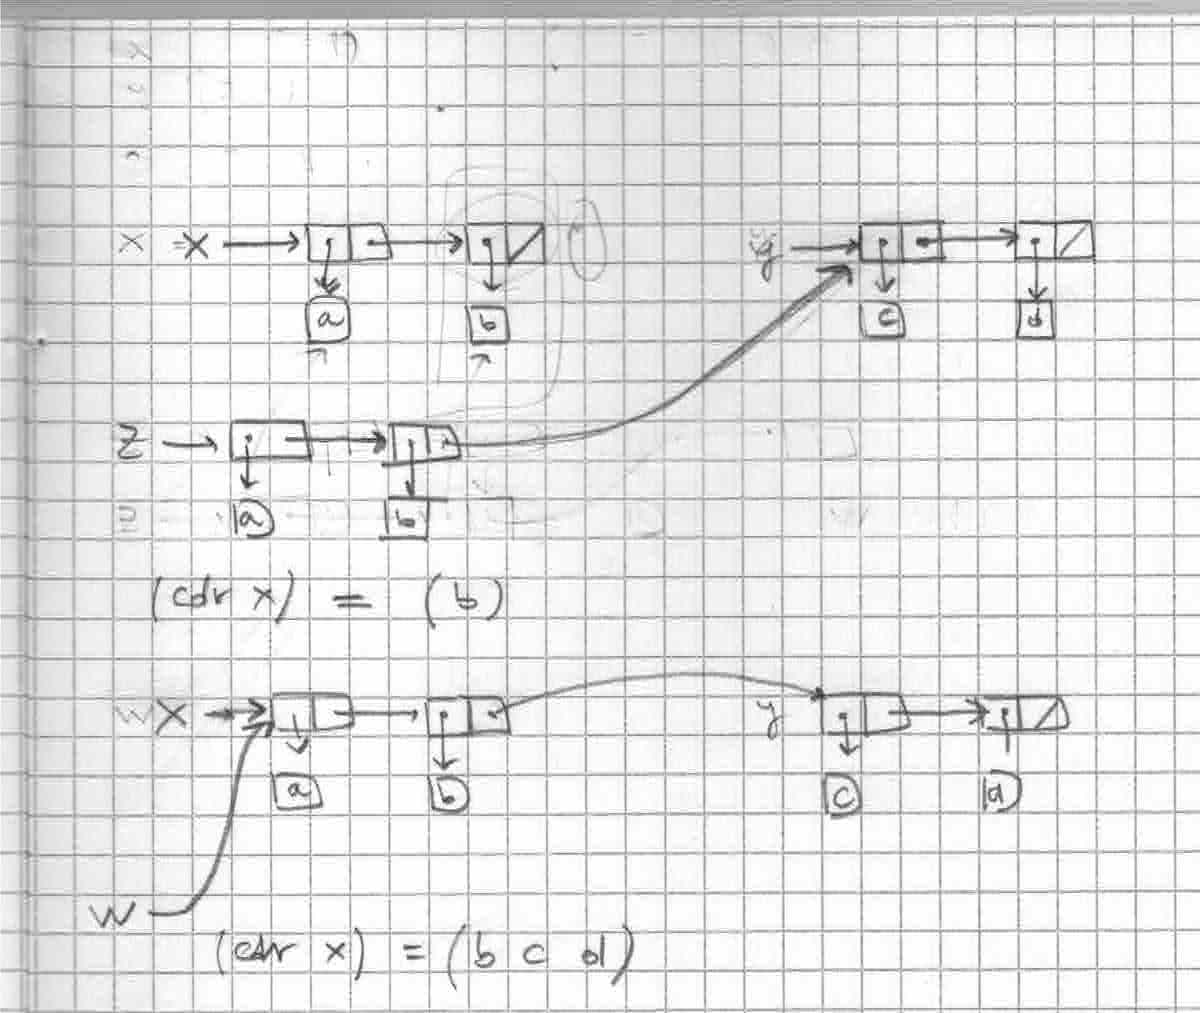 x = x y
a b c d
z
a b
(cdr x) = (b)
w x y
a b c d
w
(cdr x) = (b c d)